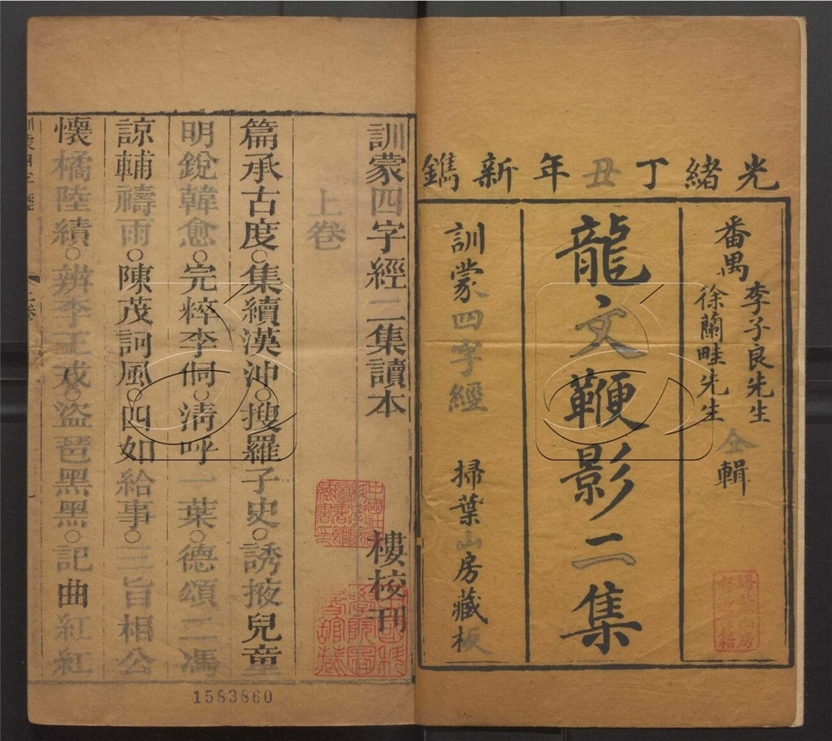 光緒丁丑年新鐫
番禺
李子良先生
徐蘭畦先生
仝輯
龍文鞭影二集
訓蒙四字經 掃葉山房藏板
訓蒙四字經二集讀本
樓校刊
上卷
篇承古度○集續漢沖○搜羅子史○誘掖兒童
明銳韓愈○完粹李侗○清呼一葉○德頌二馮
諒輔禱雨○陳茂訶風○四如給事○三旨相公
懷橘陸績○辨李王戎○盜琶黑黑○記曲紅紅
1583860